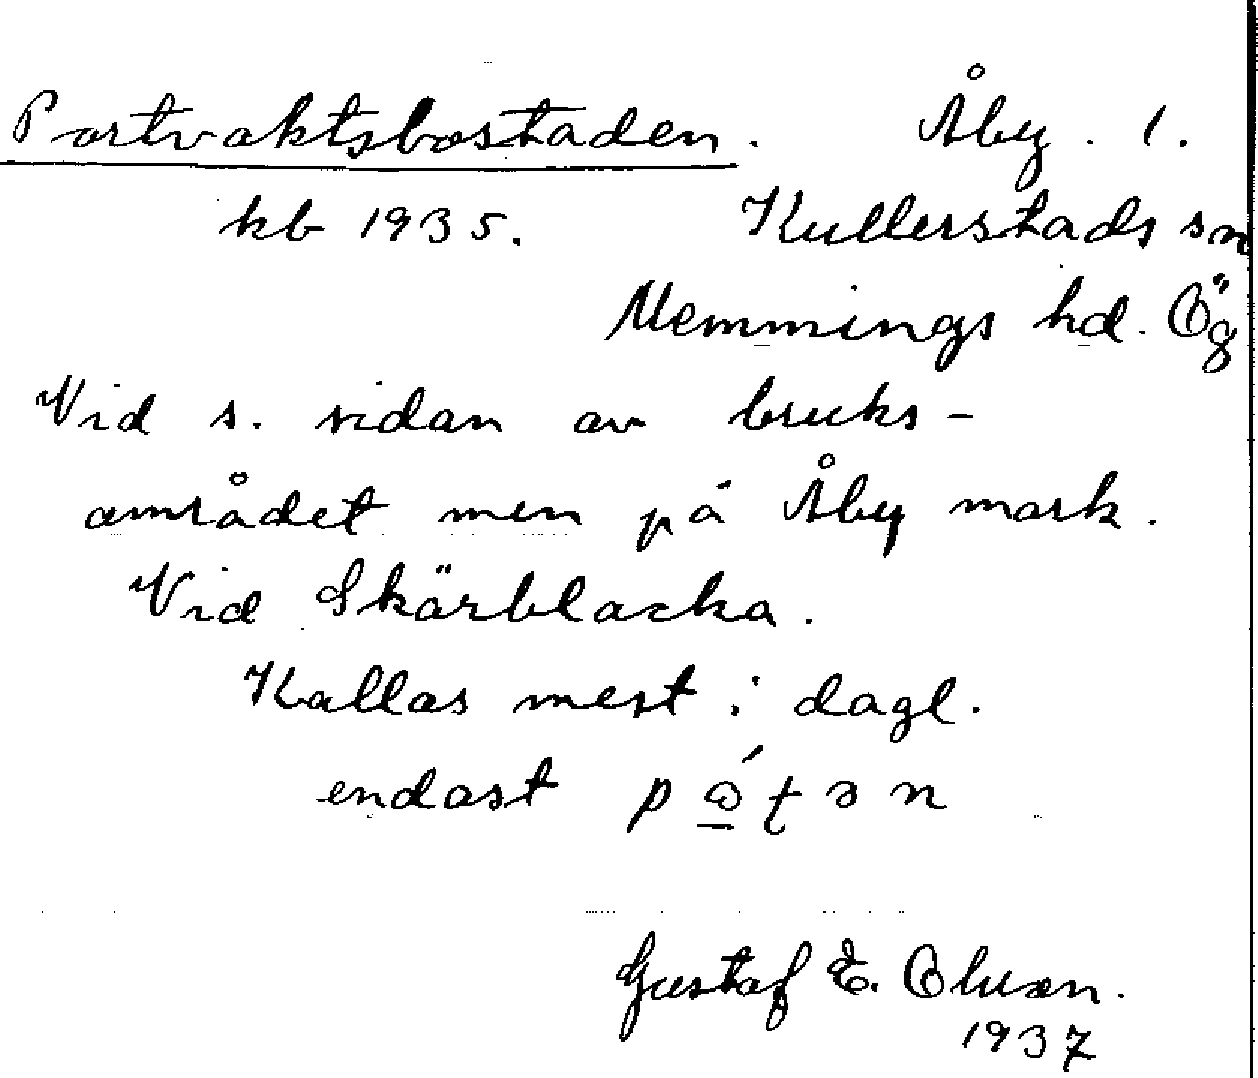 Portvaktsbostaden. Åby. 1.
kb 1935. Kullerstads sn
Memmings hd. Ög
Vid s. sidan av bruks-
området men på Åby mark.
Vid Skärblacka.
Kallas mest i dagl.
endast
Gustaf E. Olsson.
1937